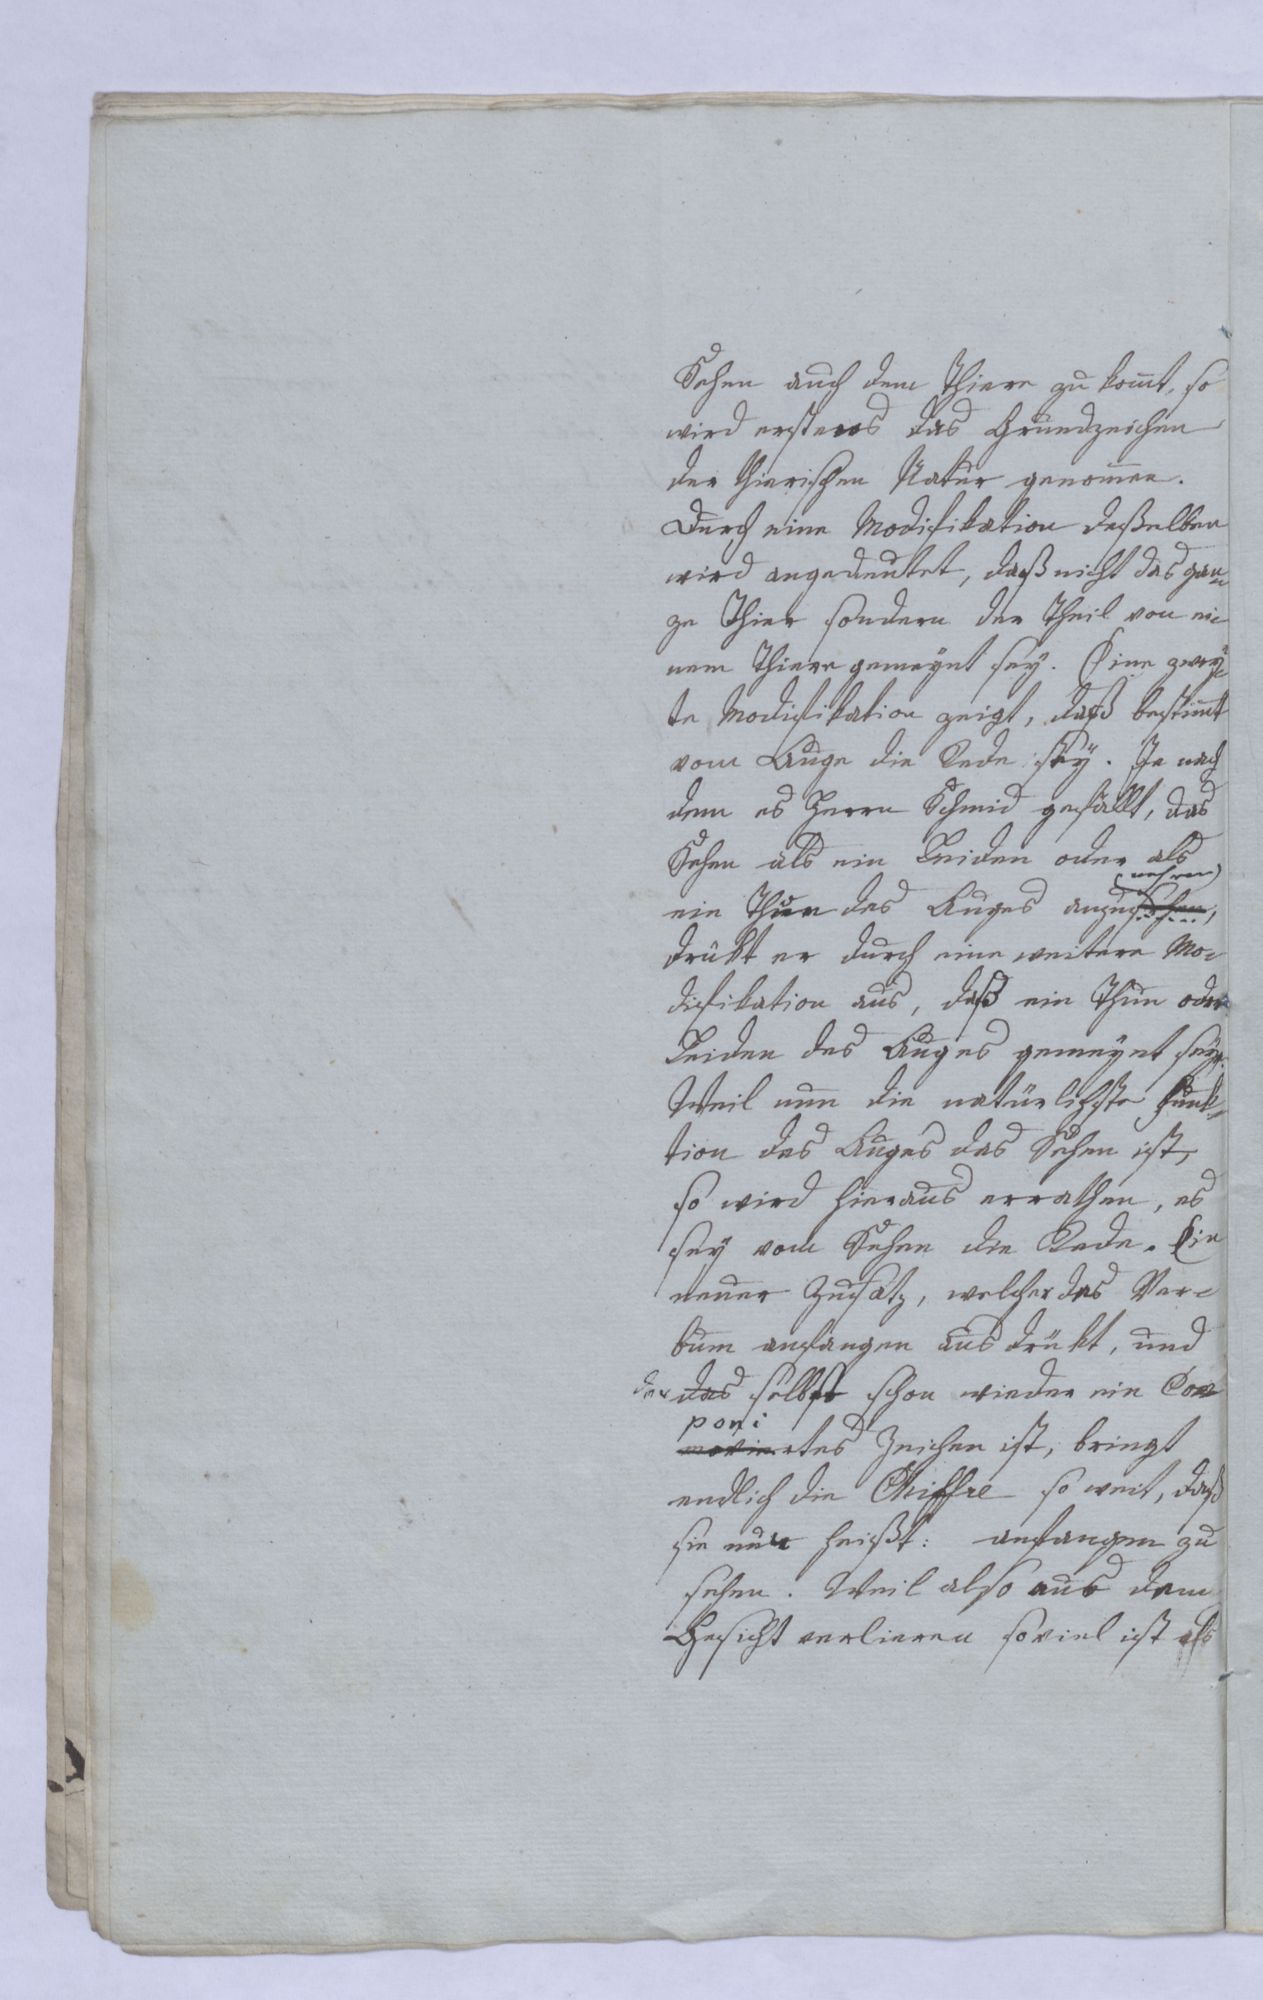 Sehen auch dem Thiere zu kom̄t, so
wird erstens das Grundzeichen
der thierischen Natur genom̄en.
Durch eine Modifikation deßelben
wird angedeutet, daß nicht das gan¬
ze Thier sondern der Theil von ei¬
nem Thiere gemeynt sey. Eine zwey¬
te Modifikation zeigt, daß bestim̄t
vom Auge die Rede sey. Je nach
dem es Herrn Schmid gefällt, das
Sehen als ein Leiden oder als
(nehmen)
ein Thun des Auges anzusehen,
drükt er durch eine weitere Mo¬
difikation aus, daß ein Thun oder
Leiden des Auges gemeynt sey.
Weil nun die natürlichste Funk¬
tion des Auges das Sehen ist,
so wird hieraus errathen, es
sey vom Sehen die Rede. Ein
neuer Zusatz, welcher das Ver¬
bum anfangen aus drükt, und
der das selbst schon wieder ein Com
poni
rtes Zeichen ist, bringt
endlich die Chiffre so weit, daß
sie nun heißt: anfangen zu
sehen. Weil also aus dem
Gesicht verlieren soviel ist als